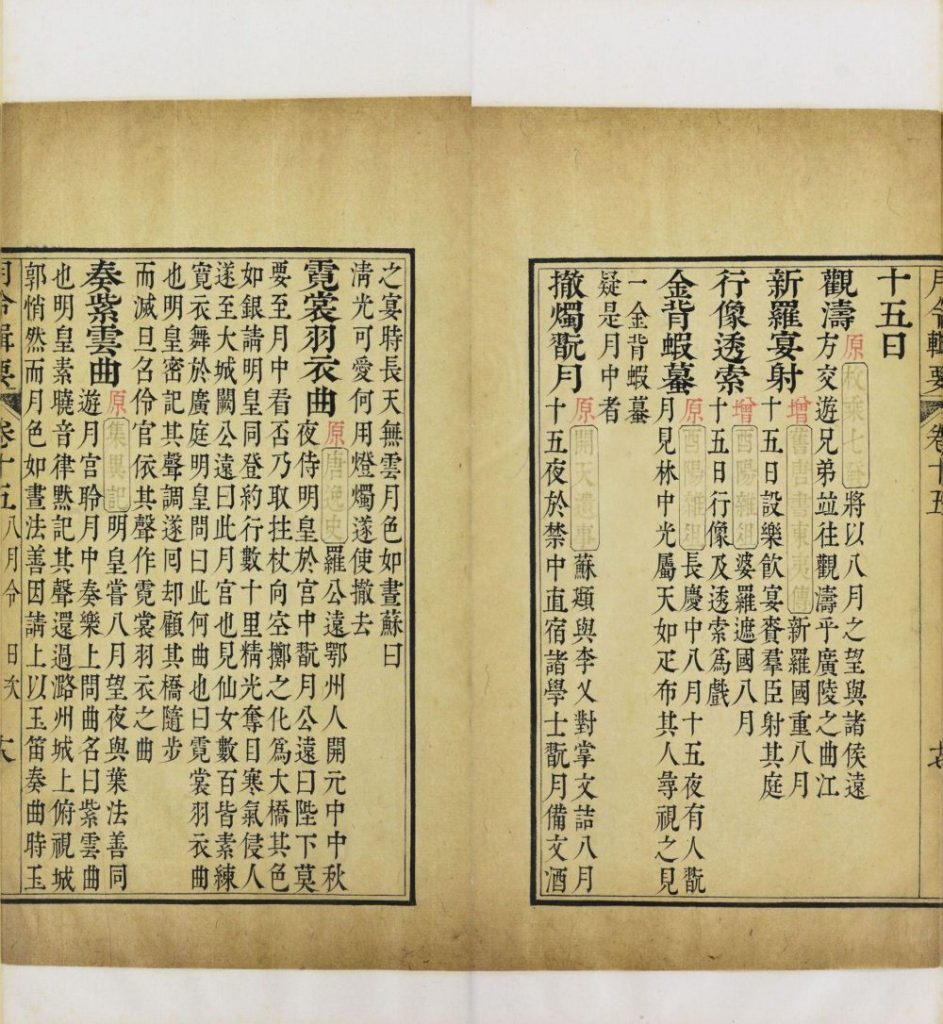 月令輯要 卷十五
十五日
觀濤 原 枚乘七發 將以八月之望與諸侯遠
方交遊兄弟並往觀濤乎廣陵之曲江
新羅宴射 增 舊唐書東夷傳 新羅國重八月
十五日設樂飲宴賚羣臣射其庭
行像透索 增 酉陽雜俎 婆羅遮國八月
十五日行像及透索爲戲
金背蝦蟇 原 酉陽雜俎 長慶中八月十五夜有人翫
月見林中光屬天如疋布其人尋視之見
一金背蝦蟇
疑是月中者
撤燭翫月 原 開天遺事 蘇頲與李乂對掌文誥八月
十五夜於禁中直宿諸學士翫月備文酒
之宴時長天無雲月色如晝蘇曰
淸光可愛何用燈燭遂使撤去
霓裳羽衣曲 原 唐逸史 羅公遠鄂州人開元中中秋
夜侍明皇於宮中翫月公遠曰陛下莫
要至月中看否乃取拄杖向空擲之化爲大橋其色
如銀請明皇同登約行數十里精光奪目寒氣侵人
遂至大城闕公遠曰此月宮也見仙女數百皆素練
寬衣舞於廣庭明皇問曰此何曲也曰霓裳羽衣曲
也明皇密記其聲調遂囘却顧其橋隨步
而滅旦召伶官依其聲作霓裳羽衣之曲
奏紫雲曲 原 集異記 明皇嘗八月望夜與葉法善同
遊月宮聆月中奏樂上問曲名曰紫雲曲
也明皇素曉音律黙記其聲還過潞州城上俯視城
郭悄然而月色如晝法善因請上以玉笛奏曲時玉
月令輯要 卷十五 八月令 日次